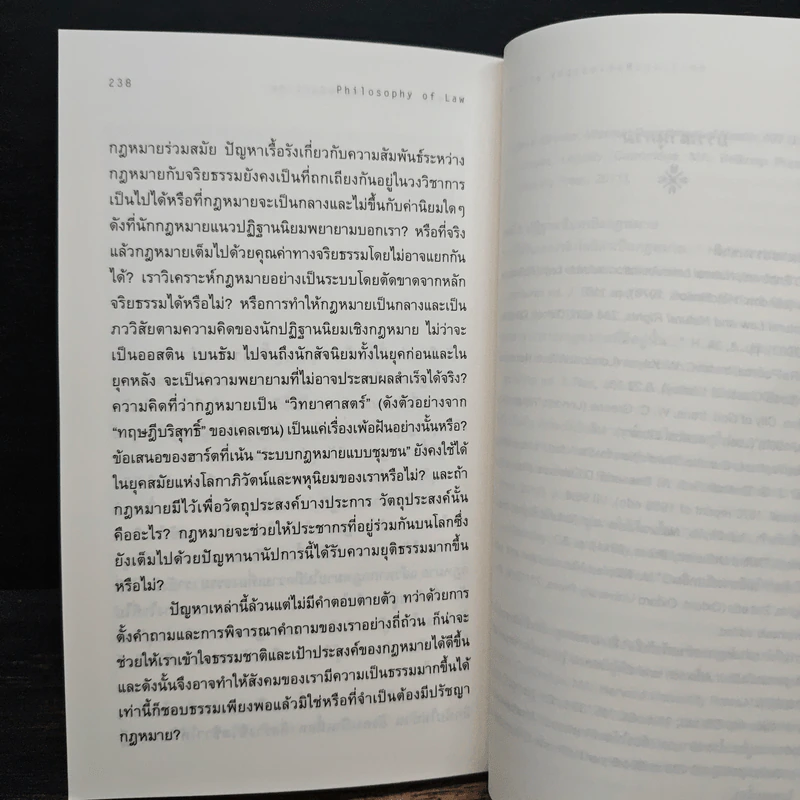 238
Philosophy of Law
กฎหมายร่วมสมัย ปัญหาเรื้อรังเกี่ยวกับความสัมพันธ์ระหว่าง
กฎหมายกับจริยธรรมยังคงเป็นที่ถกเถียงกันอยู่ในวงวิชาการ
เป็นไปได้หรือที่กฎหมายจะเป็นกลางและไม่ขึ้นกับค่านิยมใดๆ
ดังที่นักกฎหมายแนวปฏิฐานนิยมพยายามบอกเรา? หรือที่จริง
แล้วกฎหมายเต็มไปด้วยคุณค่าทางจริยธรรมโดยไม่อาจแยกกัน
ได้? เราวิเคราะห์กฎหมายอย่างเป็นระบบโดยตัดขาดจากหลัก
จริยธรรมได้หรือไม่? หรือการทำให้กฎหมายเป็นกลางและเป็น
ภววิสัยตามความคิดของนักปฏิฐานนิยมเชิงกฎหมาย ไม่ว่าจะ
เป็นออสติน เบนธัม ไปจนถึงนักสัจนิยมทั้งในยุคก่อนและใน
ยุคหลัง จะเป็นความพยายามที่ไม่อาจประสบผลสำเร็จได้จริง?
ความคิดที่ว่ากฎหมายเป็น “วิทยาศาสตร์” (ดังตัวอย่างจาก
“ทฤษฎีบริสุทธิ์” ของเคลเซน) เป็นแค่เรื่องเพ้อฝันอย่างนั้นหรือ?
ข้อเสนอของฮาร์ตที่เน้น “ระบบกฎหมายแบบชุมชน” ยังคงใช้ได้
ในยุคสมัยแห่งโลกาภิวัตน์และพหุนิยมของเราหรือไม่? และถ้า
กฎหมายมีไว้เพื่อวัตถุประสงค์บางประการ วัตถุประสงค์นั้น
คืออะไร? กฎหมายจะช่วยให้ประชากรที่อยู่ร่วมกันบนโลกซึ่ง
ยังเต็มไปด้วยปัญหานานัปการนี้ได้รับความยุติธรรมมากขึ้น
หรือไม่?
ปัญหาเหล่านี้ล้วนแต่ไม่มีคำตอบตายตัว ทว่าด้วยการ
ตั้งคำถามและการพิจารณาคำถามของเราอย่างถี่ถ้วน ก็น่าจะ
ช่วยให้เราเข้าใจธรรมชาติและเป้าประสงค์ของกฎหมายได้ดีขึ้น
และดังนั้นจึงอาจทำให้สังคมของเรามีความเป็นธรรมมากขึ้นได้
เท่านี้ก็ชอบธรรมเพียงพอแล้วมิใช่หรือที่จำเป็นต้องมีปรัชญา
กฎหมาย?